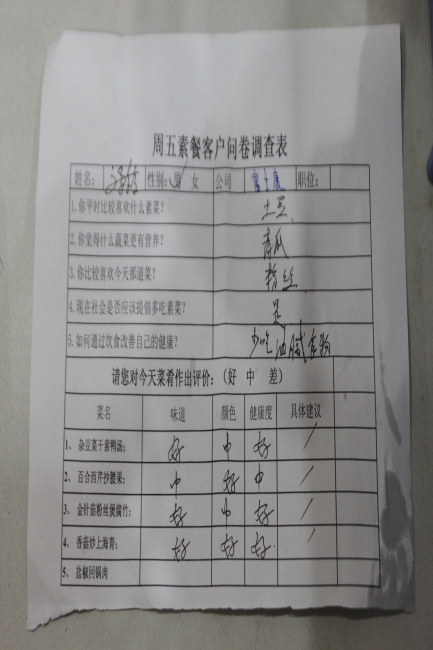 周五素餐客户问卷调查表
姓名： 性别：男 女 公司 富士康 职位：
1.你平时比较喜欢什么素菜？ 土豆
2.你觉得什么蔬菜更有营养？ 青瓜
3.你比较喜欢今天那道菜？ 粉丝
4.现在社会是否应该提倡多吃素菜？ 是
5.如何通过饮食改善自己的健康？ 少吃油腻食物
请您对今天菜肴作出评价：（好 中 差）
菜名 味道 颜色 健康度 具体建议
1、杂豆菜干素鸭汤： 好 中 好 /
2、百合西芹抄腰果： 中 好 中 /
3、金针菇粉丝煲腐竹： 好 中 好 /
4、香菇炒上海青： 好 好 好 /
5、盐椒回锅肉